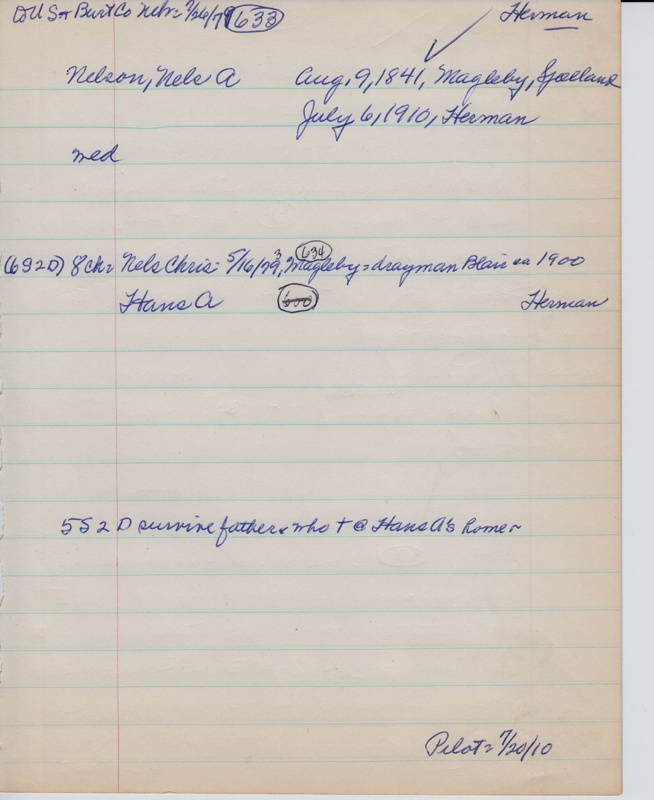 to U S → Burt Co Nebr = 7/26/79 633 Herman
Nelson, Nels A Aug, 9, 1841, Magleby, Sjoelland
July 6, 1910, Herman
med
(6S2D) 8ch = Nels Chris - 5/16/73, Magleby = drayman Blair ca 1900 634
Hans A 600 Herman
5 S 2 D survive father & who † @ Hans A's home -
Pilot = 7/20/10